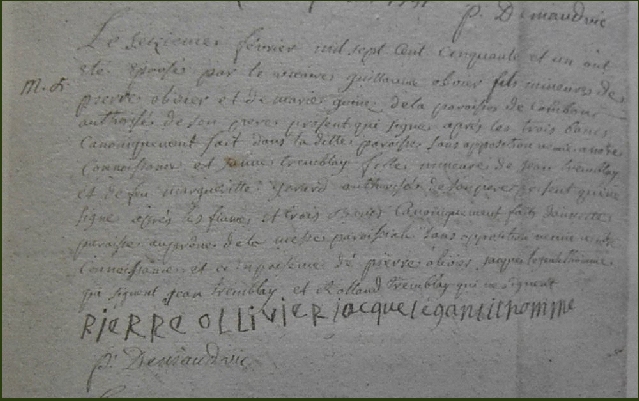 p. Demaudvie
Le seizieme février mil sept cent cinquante et un ont
été epousés par le guillaume olivier fils mineur de
M. F.
pierre olivier et de marie de la paroisse de combour
authorisé de son pere present qui signe après les trois bans
Canoniquement fait dans la ditte paroisse sans opposition
Connoissance et jeanne tremblay fille mineure de jean tremblay
et de feu margueritte authorisée de son pere present qui ne
signe après les fiances et trois Bans Canoniquement faits dans cette
paroisse au prône de la messe paroissiale sans opposition venue a notre
Connoissance et ce en presence de pierre olivier jacques
qui signent jean tremblay et Rolland tremblay qui ne signent
PIERRE OLLIVIER jacque legantilhomme
p. Demaudvie